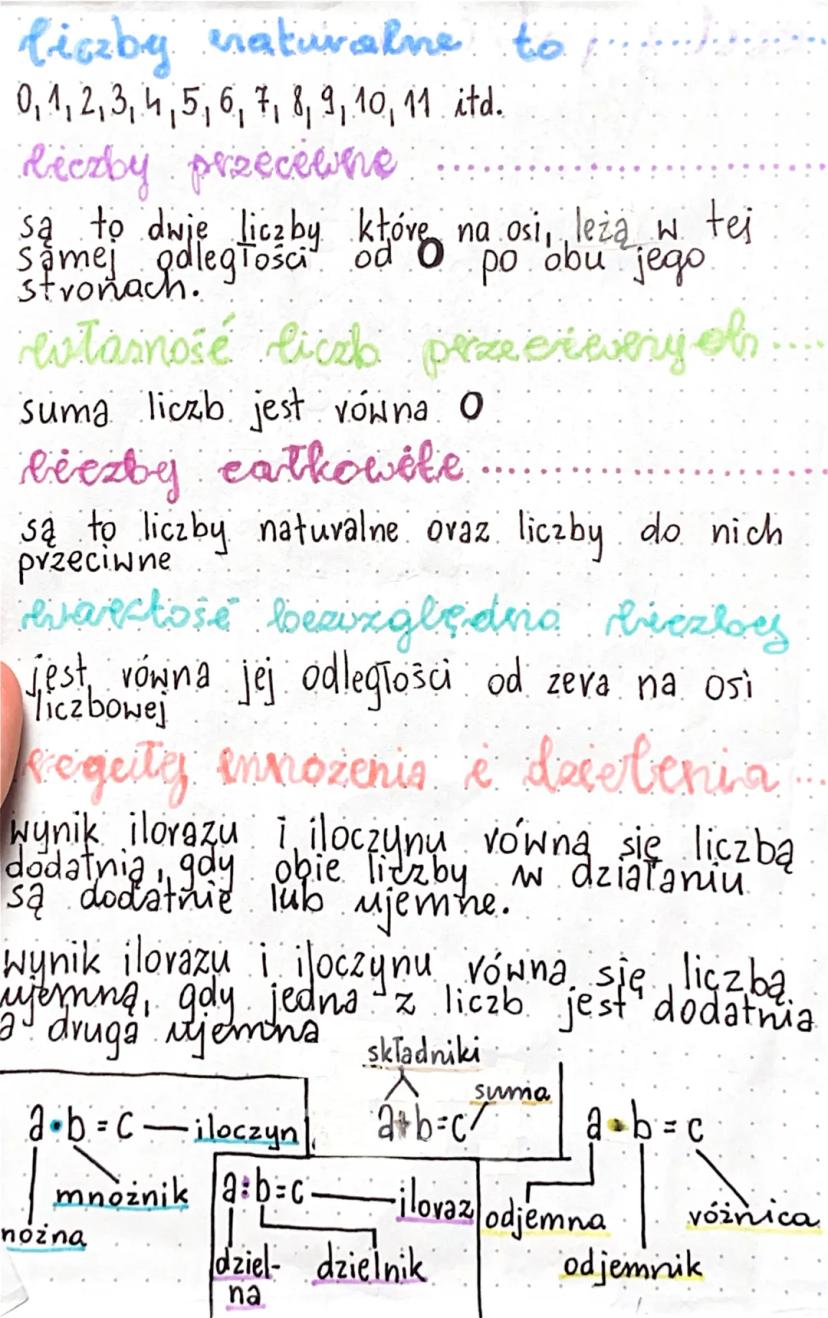 liczby naturalne to
0, 1, 2, 3, 4, 5, 6, 7, 8, 9, 10, 11 itd.
liczby przeciwne
są to dwie liczby które na osi, leżą w tej
samej odległości od 0 po obu jego
stronach.
własność liczb przeciwnych
suma liczb jest równa 0
liczby całkowite
są to liczby naturalne oraz liczby do nich
przeciwne
wartość bezwzględna liczby
jest równa jej odległości od zera na osi
liczbowej
reguły mnożenia i dzielenia
wynik ilorazu i iloczynu równa się liczbą
dodatnią, gdy obie liczby w działaniu
są dodatnie lub ujemne.
wynik ilorazu i iloczynu równa się liczbą
ujemną, gdy jedna z liczb jest dodatnia
a druga ujemna
składniki
suma
a+b=c
a•b=c iloczyn
mnożnik
nożna
a:b=c iloraz
dziel-
na
dzielnik
a-b=c
odjemna
różnica
odjemnik